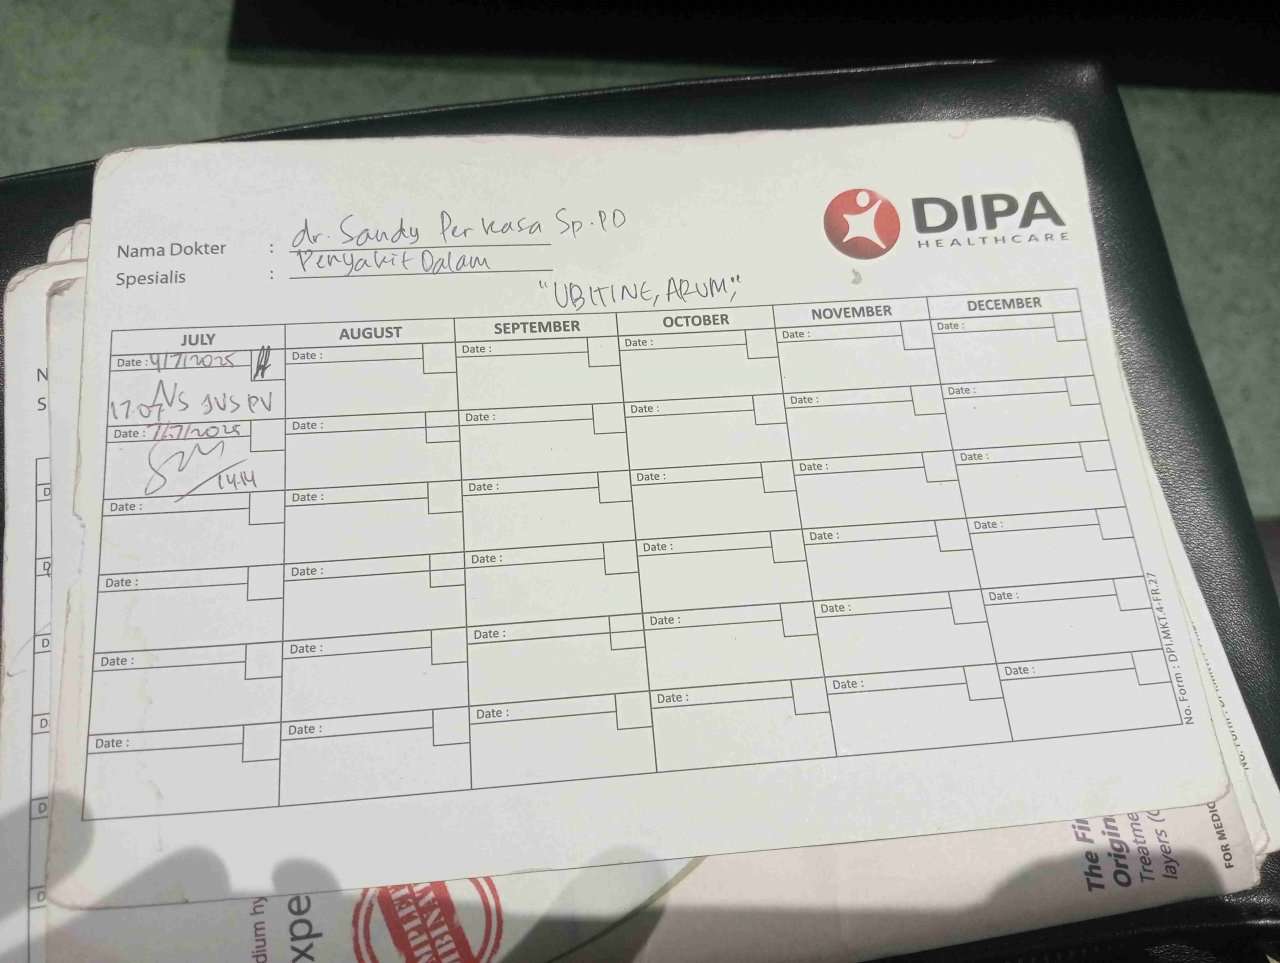 DIPA
HEALTHCARE
Nama Dokter : dr. Sandy Perkasa Sp.PD
Spesialis : Penyakit Dalam
"UBITINE, ARUM,"
JULY AUGUST SEPTEMBER OCTOBER NOVEMBER DECEMBER
Date : 4/7/2025 Date : Date : Date : Date : Date :
17.07 JVS PV
Date : 7/7/2025 Date : Date : Date : Date : Date :
14.14
Date : Date : Date : Date : Date : Date :
Date : Date : Date : Date : Date : Date :
Date : Date : Date : Date : Date : Date :
Date : Date : Date : Date : Date : Date :
No. Form : DPI.MKT.4-FR.27
N
S
D
D
D
D
D
D
dium hy
xpe
The Fi
Origin
Treatme
layers (
FOR MEDIC